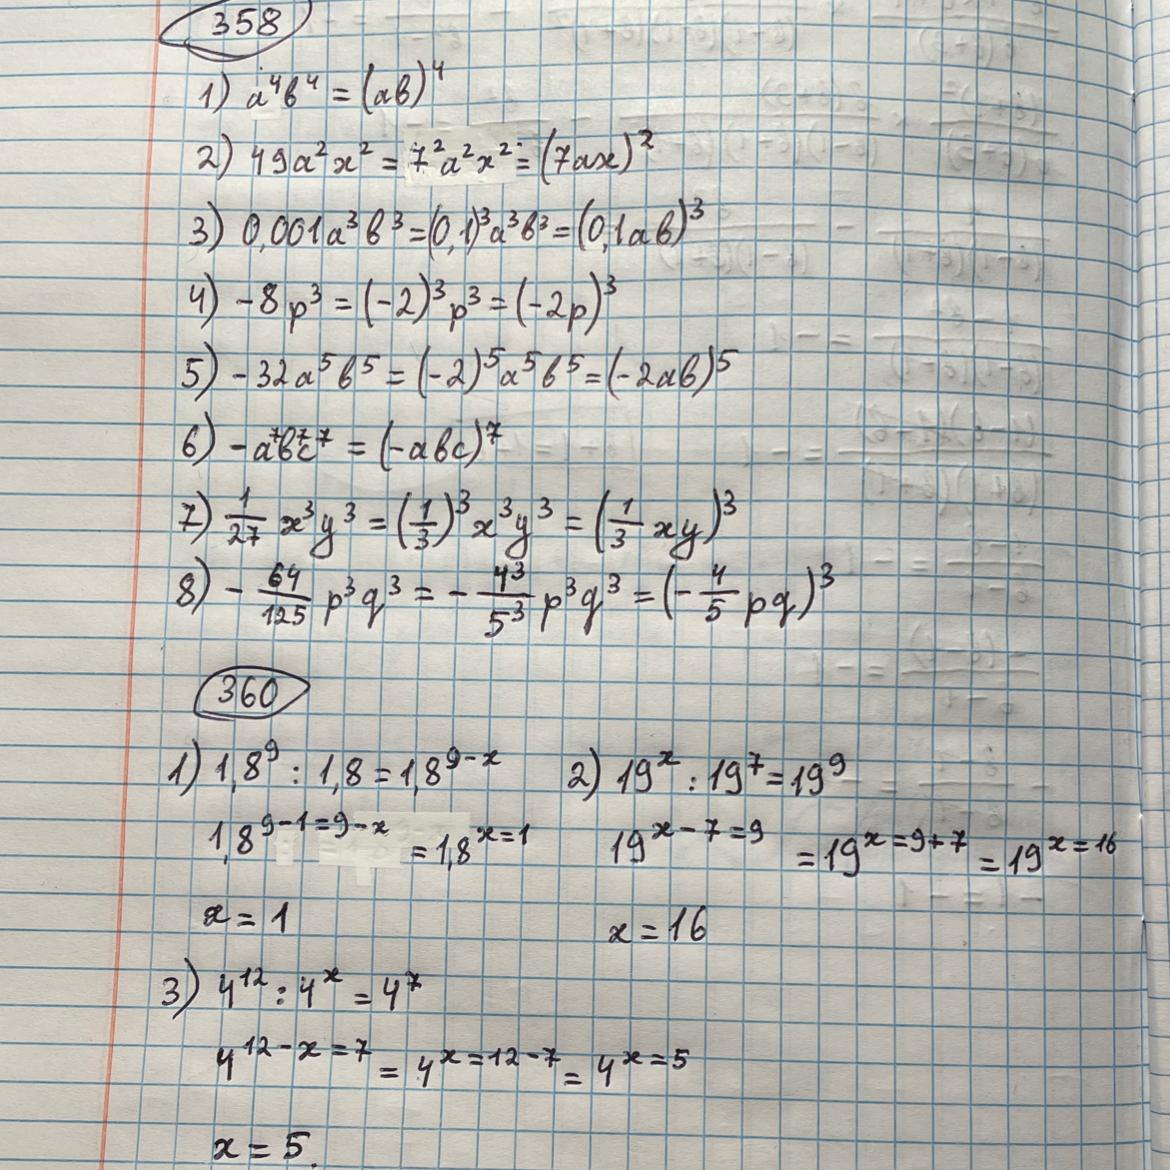 358
1) a⁴b⁴ = (ab)⁴
2) 49a²x² = 7²a²x² = (7ax)²
3) 0,001a³b³ = (0,1)³a³b³ = (0,1ab)³
4) -8p³ = (-2)³p³ = (-2p)³
5) -32a⁵b⁵ = (-2)⁵a⁵b⁵ = (-2ab)⁵
6) -a⁷b⁷c⁷ = (-abc)⁷
7) 1/27 x³y³ = (1/3)³x³y³ = (1/3 xy)³
8) - 64/125 p³q³ = - 4³/5³ p³q³ = (- 4/5 pq)³
360
1) 1,8⁹ : 1,8 = 1,8^(9-x) 2) 19^x : 19⁷ = 19⁹
1,8^(9-1=9-x) = 1,8^(x=1) 19^(x-7=9) = 19^(x=9+7) = 19^(x=16)
x = 1 x = 16
3) 4¹² : 4^x = 4⁷
4^(12-x=7) = 4^(x=12-7) = 4^(x=5)
x = 5.